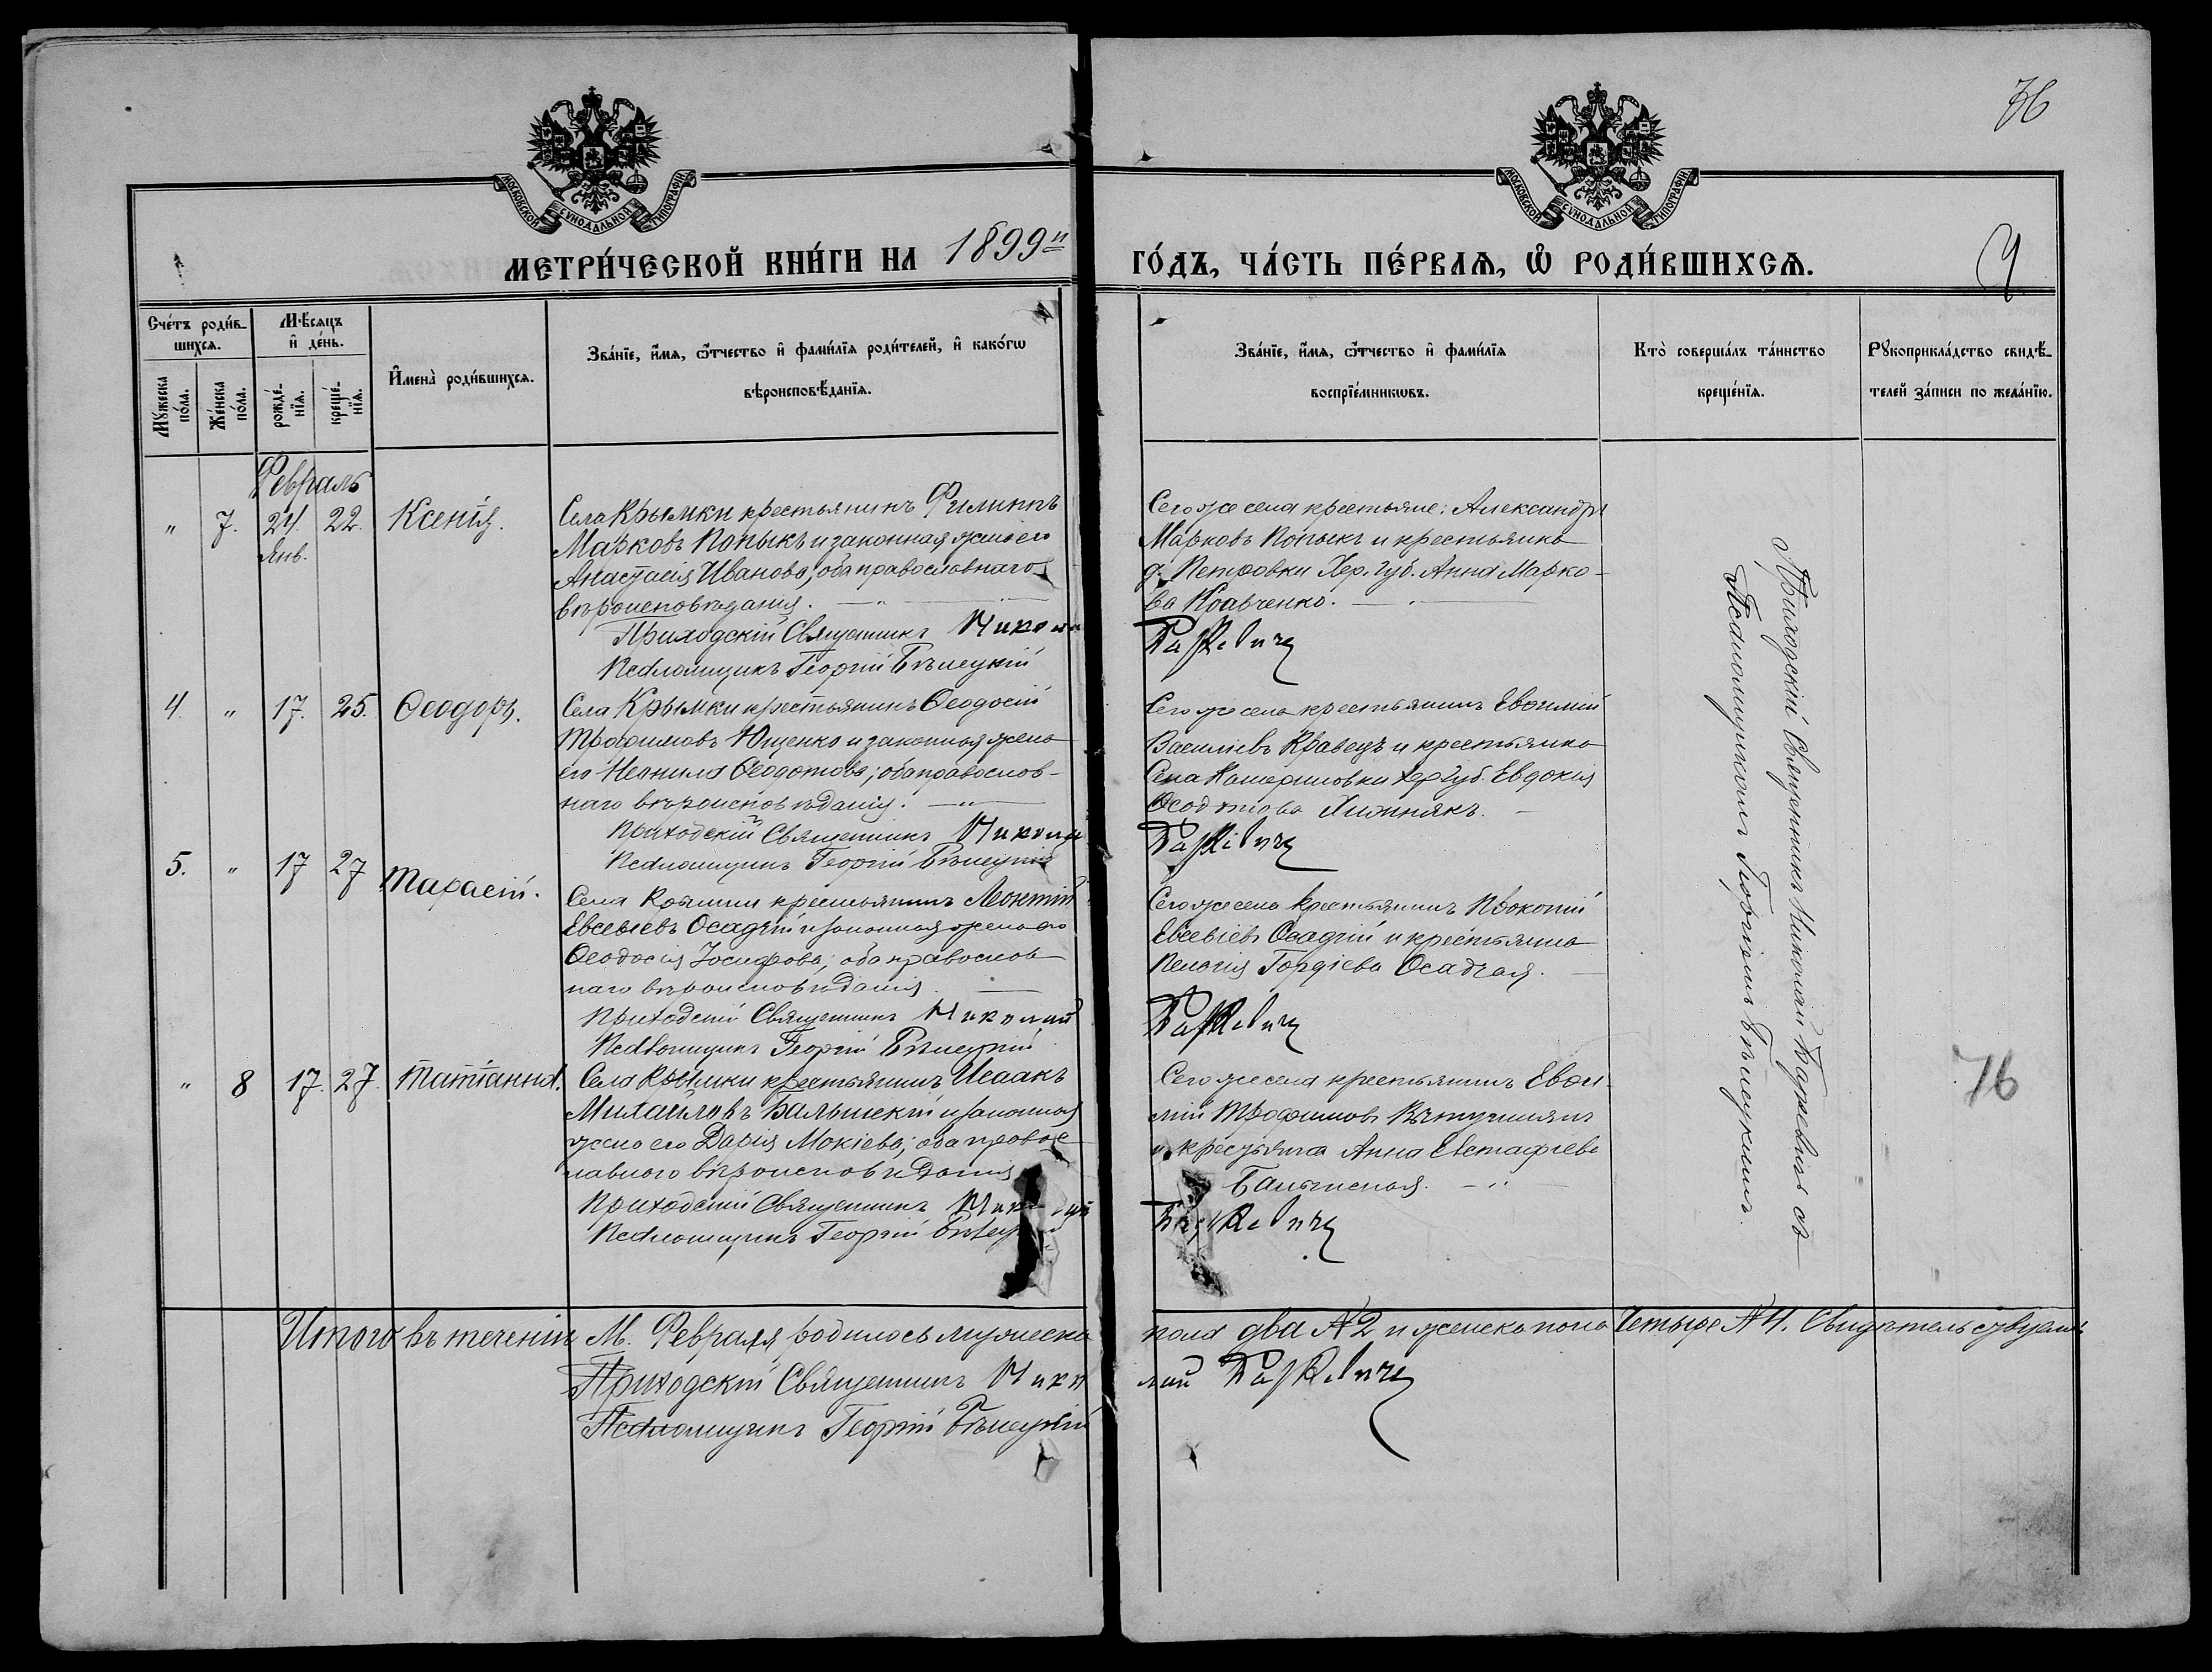 76
МОСКОВСКОЙ СѴНОДАЛЬНОЙ ТИПОГРАФІИ
МОСКОВСКОЙ СѴНОДАЛЬНОЙ ТИПОГРАФІИ
МЕТРИ́ЧЕСКОЙ КНИ́ГИ НА 1899й ГО́ДЪ, ЧА́СТЬ ПЕ́РВАѦ, Ѡ РОДИ́ВШИХСѦ.
Сче́тъ роди́в-
шихсѧ.
Мꙋ́жеска по́ла.
Же́нска по́ла.
Мѣ́сѧцъ
и҆ де́нь.
рожде́-
нїѧ.
креще́-
нїѧ.
И҆мена̀ роди́вшихсѧ.
Зва́нїе, и҆́мѧ, ѻ҆́тчество и҆ фами́лїѧ роди́телей, и҆ како́гѡ
вѣроисповѣ́данїѧ.
Зва́нїе, и҆́мѧ, ѻ҆́тчество и҆ фами́лїѧ
воспрїе́мникѡвъ.
Кто̀ соверша́лъ та́инство
креще́нїѧ.
Рꙋкоприкла́дство свидѣ́-
телей за́писи по жела́нїю.
Февраль
" 7. 24. Янв. 22. Ксенія.
Села Крымки крестьянинъ Филиппъ
Марковъ Попыкъ и законная жена его
Анастасія Иванова, оба православнаго
вѣроисповѣданія.
Приходскій Священникъ Николай
Псаломщикъ Георгій Бѣлецкій
Сего же села крестьяне: Александръ
Марковъ Попыкъ и крестьянка
д. Петровки Хер. губ. Анна Марко-
ва Кравченко.
4. " 17. 25. Ѳеодоръ.
Села Крымки крестьянинъ Ѳеодосій
Трофимовъ Ющенко и законная жена
его Неонила Ѳеодотова; оба православ-
наго вѣроисповѣданія.
Приходскій Священникъ Николай
Псаломщикъ Георгій Бѣлецкій
Сего же села крестьянинъ Евѳимій
Василіевъ Кравецъ и крестьянка
Села Катериновки Хер. губ. Евдокія
Ѳеодотова Хижнякъ.
5. " 17 27 Тарасій.
Села Крымки крестьянинъ Леонтій
Евсевіевъ Осадчій и законная жена его
Ѳеодосія Іосифова; оба православ-
наго вѣроисповѣданія.
Приходскій Священникъ Николай
Псаломщикъ Георгій Бѣлецкій
Сего же села крестьянинъ Прокопій
Евсевіевъ Осадчій и крестьянка
Пелагія Гордіева Осадчая.
" 8 17. 27. Татіанна.
Села Крымки крестьянинъ Исаакъ
Михайловъ и законная
жена его Дарія Мокіева; оба правос-
лавнаго вѣроисповѣданія
Приходскій Священникъ Николай
Псаломщикъ Георгій Бѣлецкій
Сего же села крестьянинъ Евѳи-
мій Трофимовъ
и крестьянка Анна Евстафіева
Приходскій Священникъ Николай съ
Псаломщикомъ Георгіемъ Бѣлецкимъ.
76
Итого въ теченіи М. Февраля родилось мужеска пола два №2 и женска пола четыре №4. Свидѣтельствуемъ
Приходскій Священникъ Николай
Псаломщикъ Георгій Бѣлецкій